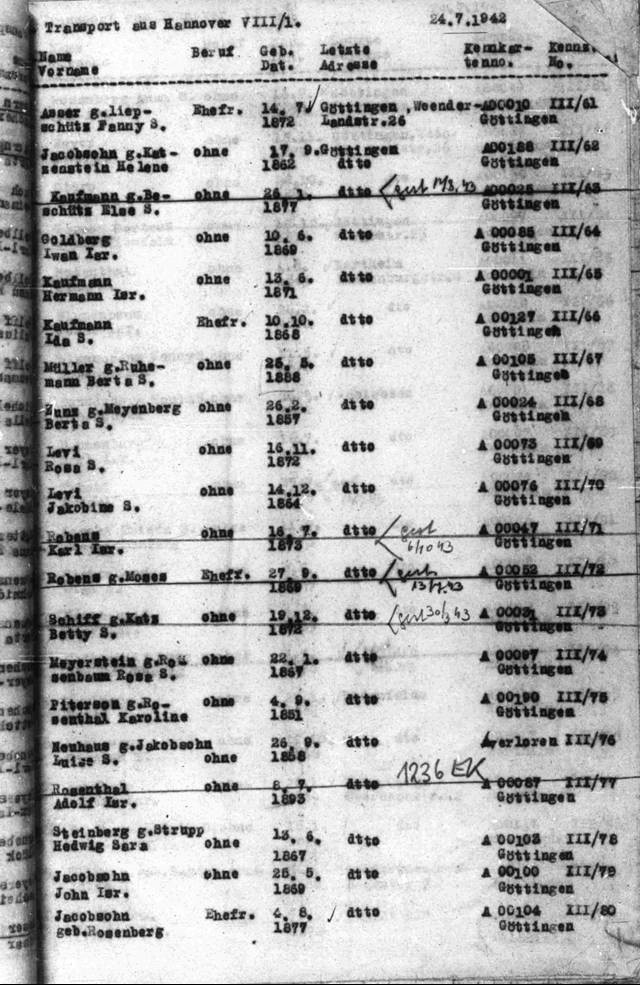 Transport aus Hannover VIII/1. 24.7.1942
Name Beruf Geb. Letzte Kennkar- Kenns.
Vorname Dat. Adresse tenno. No.
Asser g.liep- Ehefr. 14. 7. Göttingen ,Weender- A00010 III/61
schütz Fanny S. 1872 Landstr.26 Göttingen
Jacobsohn g.Kat- ohne 17. 9. Göttingen A00188 III/62
zenstein Helene 1862 dtto Göttingen
Kaufmann g.Be- ohne 26. 1. dtto A00025 III/63
schütz Else S. 1877 Göttingen
Goldberg ohne 10. 6. dtto A 00085 III/64
Iwan Isr. 1869 Göttingen
Kaufmann ohne 13. 6. dtto A 00001 III/65
Hermann Isr. 1871 Göttingen
Kaufmann Ehefr. 10.10. dtto A 00127 III/66
Ida S. 1868 Göttingen
Müller g.Ruhe- ohne 25. 5. dtto A 00105 III/67
mann Berta S. 1888 Göttingen
Nuns g.Meyenberg ohne 26.2. dtto A 00024 III/68
Berta S. 1857 Göttingen
Levi ohne 16.11. dtto A 00073 III/69
Rosa S. 1872 Göttingen
Levi ohne 14.12. dtto A 00076 III/70
Jakobine S. 1864 Göttingen
Rabens ohne 16. 7. dtto gest A 00047 III/71
Karl Isr. 1873 6/10 43 Göttingen
Rebens g.Moses Ehefr. 27. 9. dtto gest A 00052 III/72
1869 Göttingen
Schiff g.Katz ohne 19.12. dtto gest 30/3 43 III/73
Betty S. 1872 Göttingen
Meyerstein g.Ro ohne 22. 1. dtto A 00097 III/74
senbaum Rosa S. 1867 Göttingen
Piterson g.Ro- ohne 4. 9. dtto A 00190 III/75
senthal Karoline 1851 Göttingen
Neuhaus g.Jakobsohn 26. 9. dtto verloren III/76
Luise S. ohne 1858
1236 EK
Rosenthal ohne 8. 7. dtto A 00087 III/77
Adolf Isr. 1893 Göttingen
Steinberg g.Strupp 13. 6. dtto A 00103 III/78
Hedwig Sara ohne 1867 Göttingen
Jacobsohn ohne 25. 5. dtto A 00100 III/79
John Isr. 1869 Göttingen
Jacobsohn Ehefr. 4. 8. dtto A 00104 III/80
geb.Rosenberg 1877 Göttingen